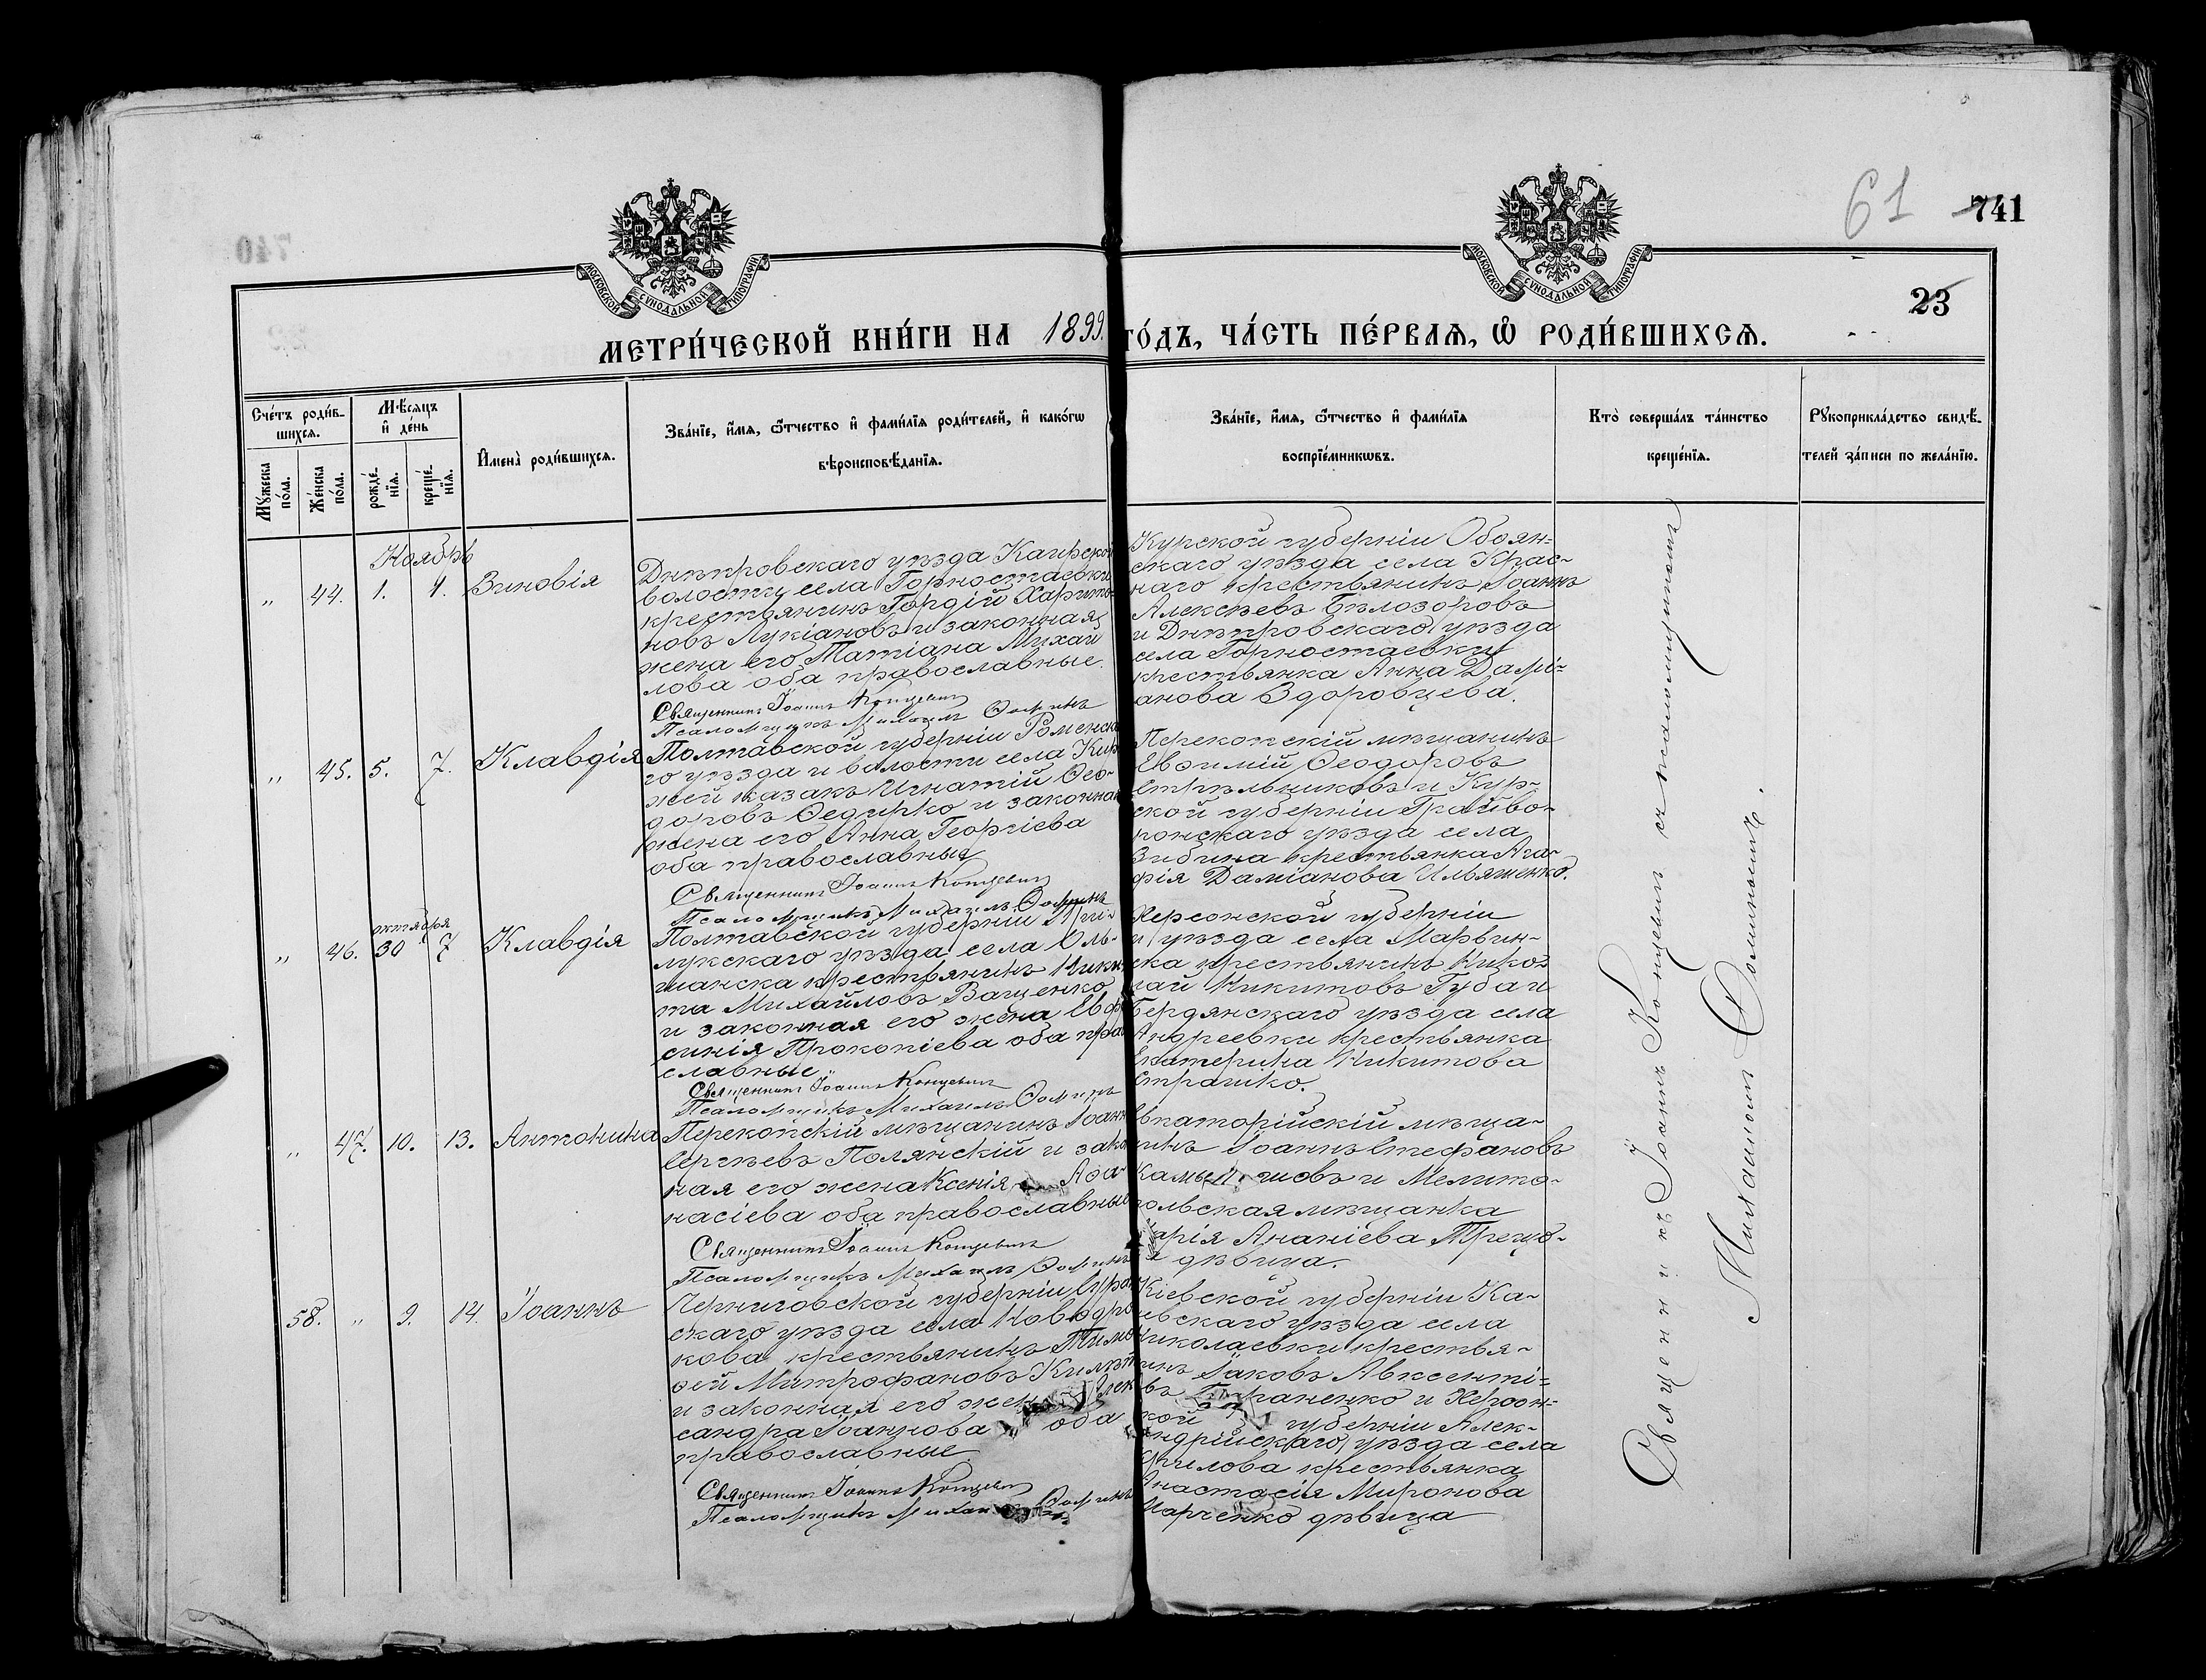 61 741
МОСКОВСКОЙ СѴНОДАЛЬНОЙ ТИПОГРАФІИ
МОСКОВСКОЙ СѴНОДАЛЬНОЙ ТИПОГРАФІИ
23
МЕТРИ́ЧЕСКОЙ КНИ́ГИ НА 1899 ГО́ДЪ, ЧА́СТЬ ПЕ́РВАѦ, Ѽ РОДИ́ВШИХСѦ.
Сче́тъ роди́в-
шихсѧ.
Мꙋ́жеска
по́ла.
Же́нска
по́ла.
Мѣ́сѧцъ
и҆ де́нь
рожде́-
нїѧ.
креще́-
нїѧ.
И҆мена̀ роди́вшихсѧ.
Зва́нїе, и҆́мѧ, ѻ҆́тчество и҆ фами́лїѧ роди́телей, и҆ како́гѡ
вѣроисповѣ́данїѧ.
Зва́нїе, и҆́мѧ, ѻ҆́тчество и҆ фами́лїѧ
воспрїе́мникѡвъ.
Кто̀ соверша́лъ та́инство
креще́нїѧ.
Рꙋкоприкла́дство свидѣ́-
телей за́писи по жела́нїю.
Ноябрь
„ 44. 1. 4. Зиновія
Днѣпровскаго уѣзда Каирской
волости, села Горностаевки
крестьянинъ Гордій Харито-
новъ Лукіановъ и законная
жена его Татіана Михай
лова оба православные.
Священникъ Іоаннъ Концевич
Псаломщикъ Михаилъ Ѳоминъ
Курской губерніи Обоян=
скаго уѣзда села Крас-
наго крестьянинъ Іоаннъ
Алексѣевъ Бѣлозоровъ
и Днѣпровскаго уѣзда
села Горностаевки
крестьянка Анна Дамі-
анова Здоровцева.
„ 45. 5. 7. Клавдія
Полтавской губерніи Роменска
го уѣзда и волости села
жей казакъ Игнатій Ѳео-
доровъ Ѳедирко и законная
жена его Анна Георгіева
оба православные
Священникъ Іоаннъ Концевич
Псаломщикъ Михаилъ Ѳоминъ
Перекопскій мѣщанинъ
Евѳимій Ѳеодоровъ
Стрѣльниковъ и Кур-
ской губерніи Грайво-
ронскаго уѣзда села
Зибина крестьянка Ага-
фія Даміанова Ильяшенко.
октября
„ 46. 30 7 Клавдія
Полтавской губерніи При-
лукскаго уѣзда села Оль-
шанска крестьянинъ Ники
та Михайловъ Ващенко
и законная его жена Евфро
синія Прокопіева оба право
славные
Священникъ Іоаннъ Концевич
Псаломщикъ Михаилъ Ѳоминъ
Херсонской губерніи
и уѣзда села Марьин-
ска крестьянинъ Нико-
лай Никитовъ Губа и
Бердянскаго уѣзда села
Андреевки крестьянка
Екатерина Никитова
Страшко.
„ 47. 10. 13. Антонина
Перекопскій мѣщанинъ Іоаннъ
Сергѣевъ Полянскій и закон
ная его жена Ксенія Аѳа-
насіева оба православные
Священникъ Іоаннъ Концевич
Псаломщикъ Михаилъ Ѳоминъ
Евпаторійскій мѣща-
нинъ Іоаннъ Стефановъ
Камышовъ и Мелито-
польская мѣщанка
Марія Ананіева
дѣвица.
58. „ 9. 14. Іоаннъ
Черниговской губерніи Сураж
скаго уѣзда села Новодро
кова крестьянинъ Тимо
ѳей Митрофановъ
и законная его жена Алек
сандра Іоаннова оба
православные
Священникъ Іоаннъ Концевич
Псаломщикъ Михаилъ Ѳоминъ
Кіевской губерніи Ка-
невскаго уѣзда села
Николаевки крестья-
нинъ Іаковъ Авксенті=
евъ и Херсон=
ской губерніи Алек-
сандрійскаго уѣзда села
крестьянка
Анастасія Миронова
Марченко дѣвица
Священникъ Іоаннъ Концевич съ псаломщикомъ
Михаиломъ Ѳоминымъ.